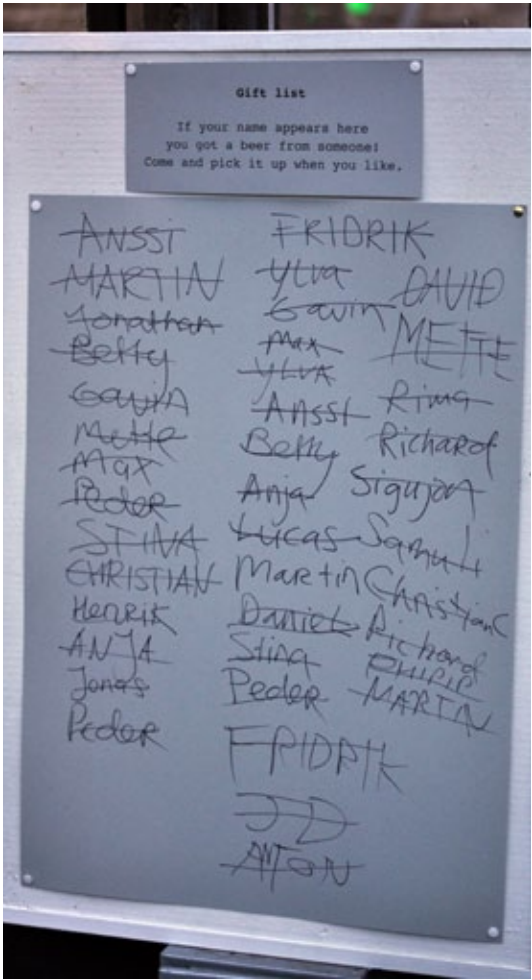 Gift list
If your name appears here
you got a beer from someone!
Come and pick it up when you like.
ANSSI
MARTIN
Jonathan
Betty
Gavin
Mette
Max
Peder
STINA
CHRISTIAN
Henrik
ANJA
Jonas
Peder
FRIDRIK
Ylva
Gavin
Max
YLVA
ANSSI
Betty
Anja
Lucas
Martin
Daniel
Stina
Peder
FRIDRIK
JD
ANTON
DAVID
METTE
Rima
Richard
Sigurjon
Samuli
Christian
Richard
PHILIP
MARTIN